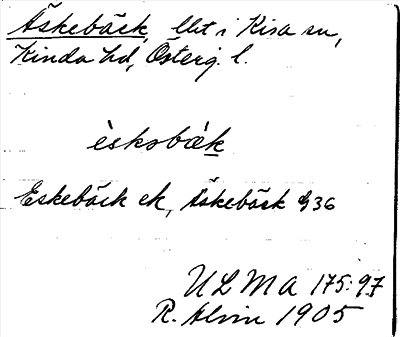 Äskebäck, llt i Kisa sn,
Kinda hd, Österg. l.
èskobæ̀k
Eskebäck ek, Äskebäck G36
ULMA 175:97
R. Alvin 1905